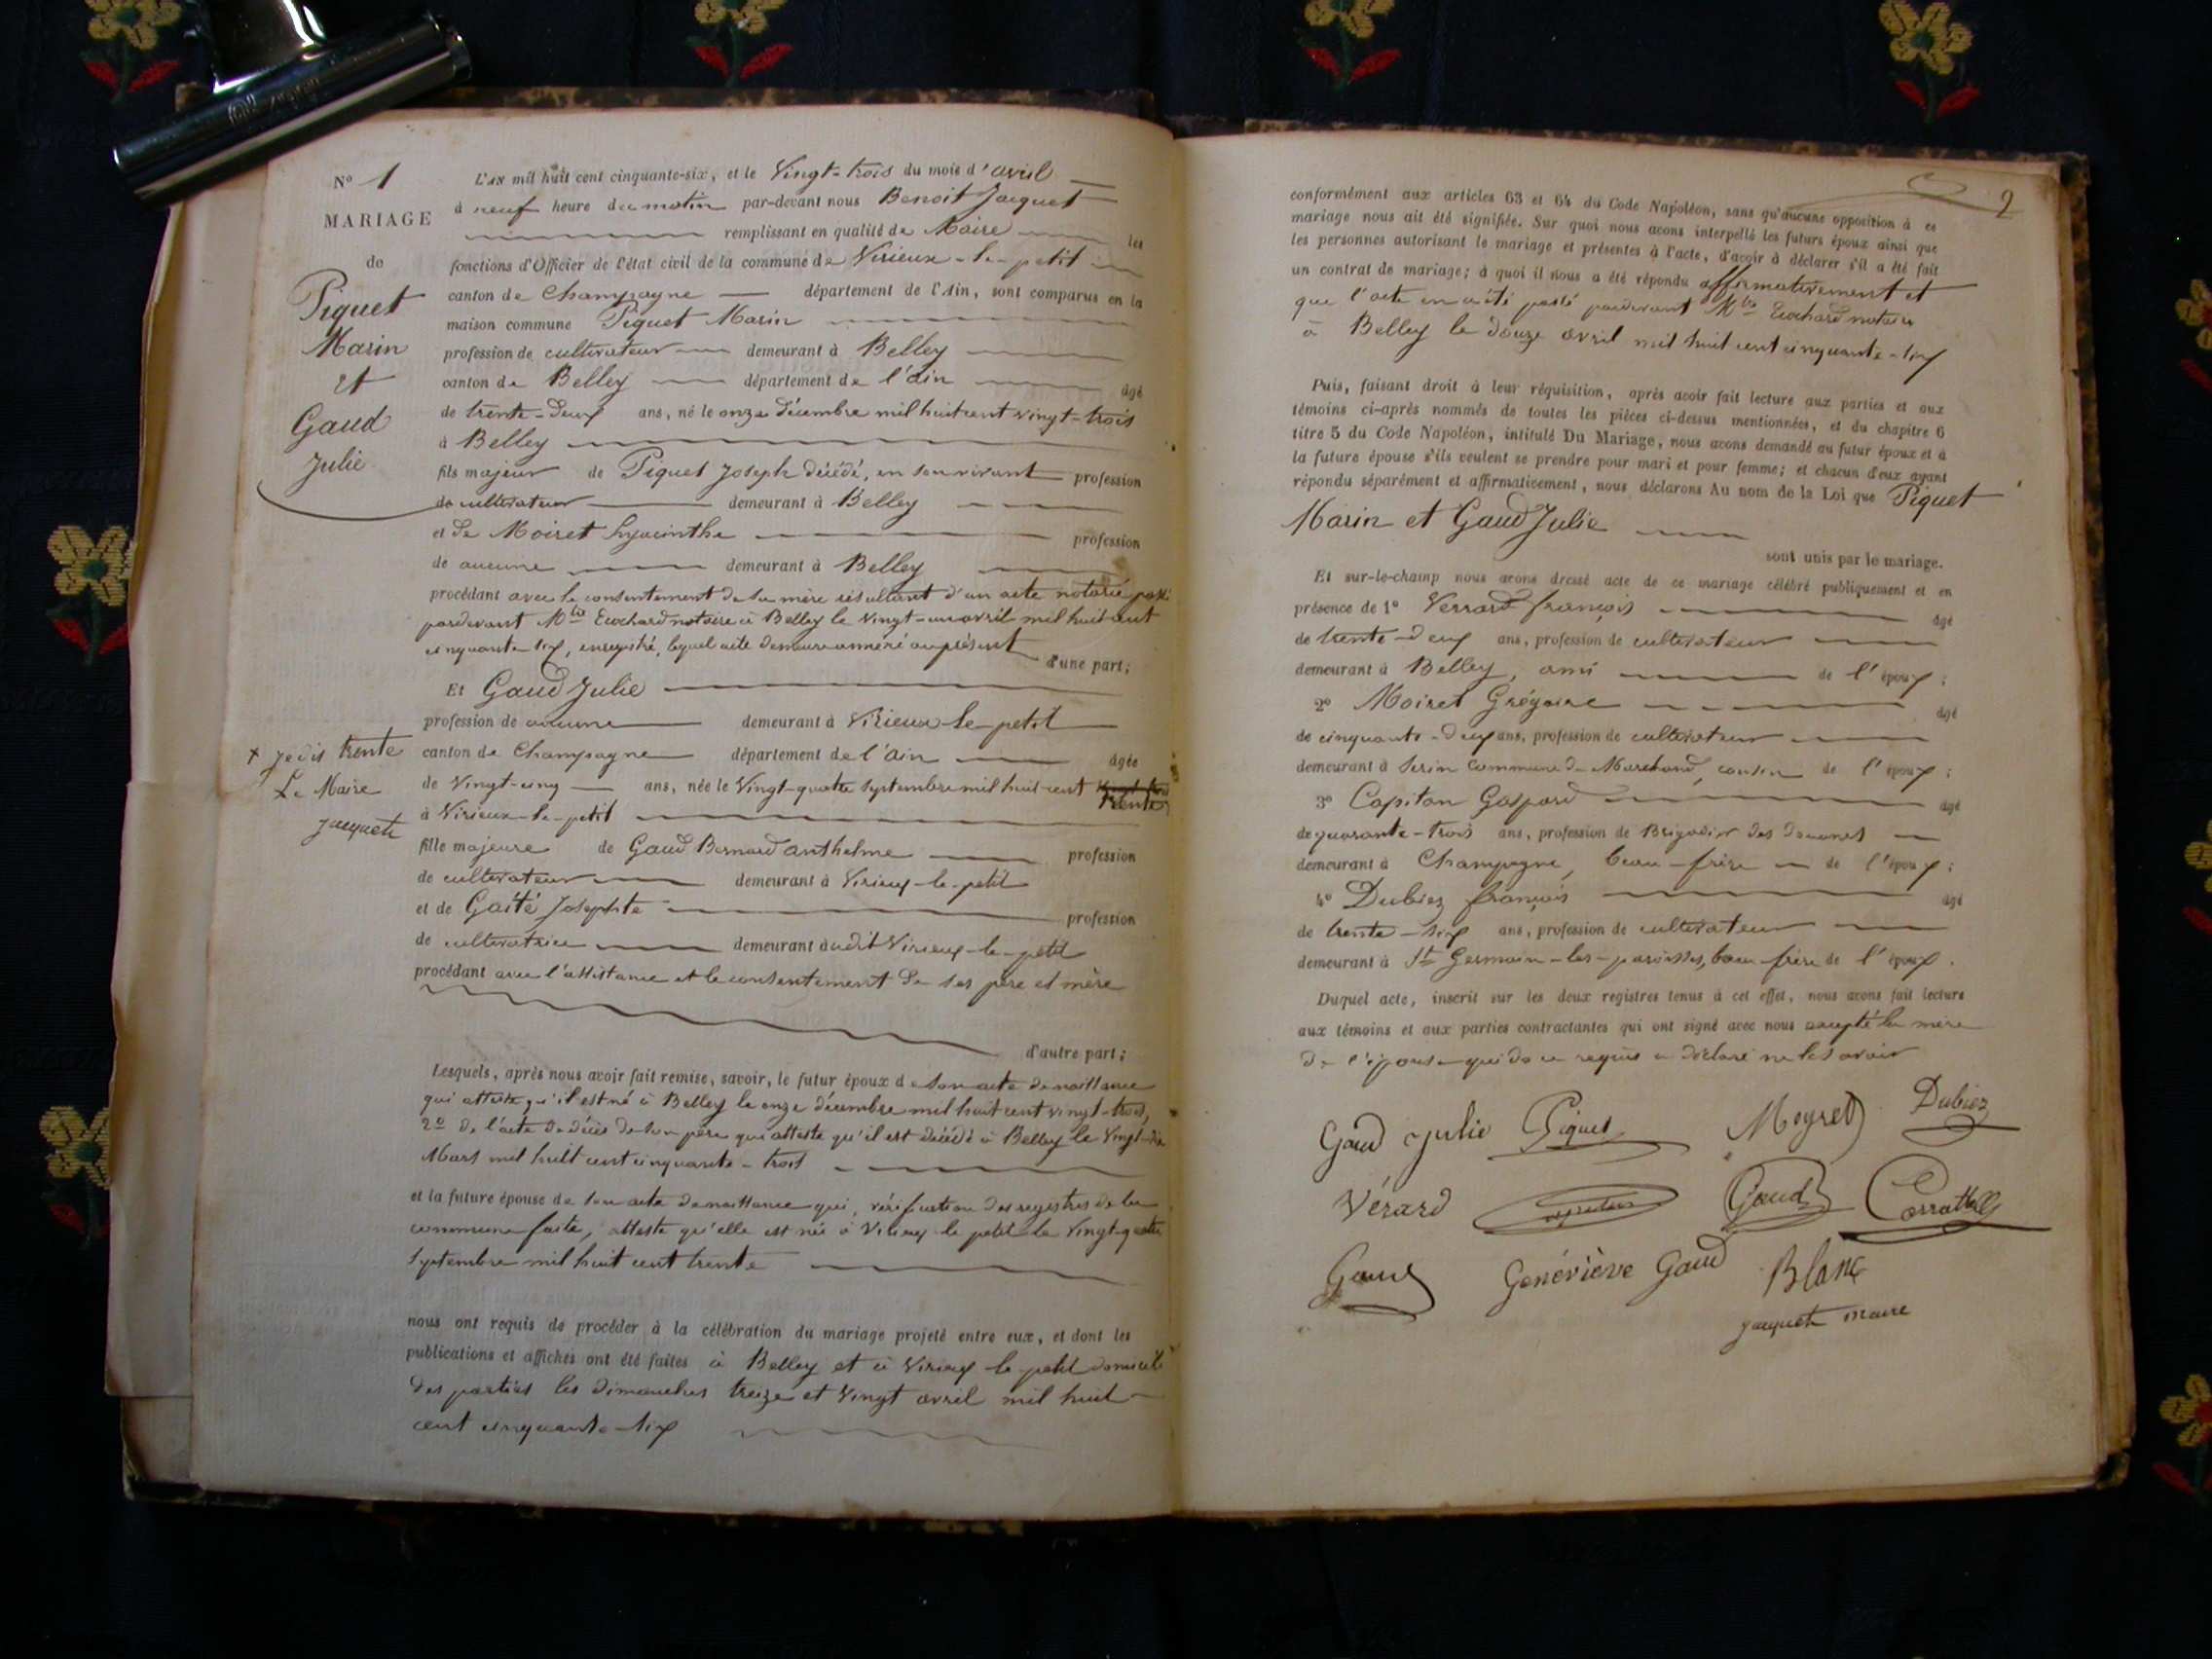 N° 1
MARIAGE
de
Piquet
Marin
et
Gaud
Julie
L'AN mil huit cent cinquante-six, et le Vingt-trois du mois d'avril
à neuf heure du matin par-devant nous Benoit Jacquet
remplissant en qualité de Maire les
fonctions d'Officier de l'état civil de la commune de Virieux-le-petit
canton de Champagne département de l'Ain, sont comparus en la
maison commune Piquet Marin
profession de cultivateur demeurant à Belley
canton de Belley département de l'ain âgé
de trente-deux ans, né le onze décembre mil huit cent vingt-trois
à Belley
fils majeur de Piquet Joseph décédé, en son vivant profession
de cultivateur demeurant à Belley
et de Moiret hyacinthe profession
de aucune demeurant à Belley
procédant avec le consentement de sa mère résultant d'un acte notarié passé
pardevant Mtre notaire à Belley le vingt-un avril mil huit cent
cinquante-six, enregistré, lequel acte demeure annexé au présent d'une part;
Et Gaud Julie
profession de aucune demeurant à Virieux-le-petit
canton de Champagne département de l'ain âgée
de vingt-cinq ans, née le Vingt-quatre septembre mil huit cent trente
à Virieux-le-petit
+ je dis trente
Le Maire
Jacquet
fille majeure de Gaud Bernard anthelme profession
de cultivateur demeurant à Virieux-le-petit
et de Gaité Josephte profession
de cultivatrice demeurant à udit Virieux-le-petit
procédant avec l'assistance et le consentement de ses père et mère
d'autre part;
Lesquels, après nous avoir fait remise, savoir, le futur époux de son acte de naissance
qui atteste qu'il est né à Belley le onze décembre mil huit cent vingt-trois,
2° de l'acte de décès de son père qui atteste qu'il est décédé à Belley le
Mars mil huit cent cinquante-trois
et la future épouse de son acte de naissance qui, vérification des registres de la
commune faite, atteste qu'elle est née à Virieux le petit le Vingt-quatre
septembre mil huit cent trente
nous ont requis de procéder à la célébration du mariage projeté entre eux, et dont les
publications et affiches ont été faites à Belley et à Virieux le-petit domicile
des parties les dimanches treize et vingt avril mil huit
cent cinquante-six
2
conformément aux articles 63 et 64 du Code Napoléon, sans qu'aucune opposition à ce
mariage nous ait été signifiée. Sur quoi nous avons interpellé les futurs époux ainsi que
les personnes autorisant le mariage et présentes à l'acte, d'avoir à déclarer s'il a été fait
un contrat de mariage; à quoi il nous a été répondu affirmativement et
que l'acte en a été passé pardevant Mtre notaire
à Belley le douze avril mil huit cent cinquante-six
Puis, faisant droit à leur réquisition, après avoir fait lecture aux parties et aux
témoins ci-après nommés de toutes les pièces ci-dessus mentionnées, et du chapitre 6
titre 5 du Code Napoléon, intitulé Du Mariage, nous avons demandé au futur époux et à
la future épouse s'ils veulent se prendre pour mari et pour femme; et chacun d'eux ayant
répondu séparément et affirmativement, nous déclarons Au nom de la Loi que Piquet
Marin et Gaud Julie
sont unis par le mariage.
Et sur-le-champ nous avons dressé acte de ce mariage célébré publiquement et en
présence de 1° Verrard françois âgé
de trente-deux ans, profession de cultivateur
demeurant à Belley, ami de l'époux;
2° Moiret Grégoire âgé
de cinquante-deux ans, profession de cultivateur
demeurant à commune de cousin de l'époux;
3° Capitan Gaspard âgé
de quarante-trois ans, profession de Brigadier des douanes
demeurant à Champagne, beau-frère de l'époux;
4° Dubiez françois âgé
de trente-six ans, profession de cultivateur
demeurant à St Germain-les-paroisses, beau-frère de l'époux.
Duquel acte, inscrit sur les deux registres tenus à cet effet, nous avons fait lecture
aux témoins et aux parties contractantes qui ont signé avec nous excepté la mère
de l'épouse qui de ce requise a déclaré ne le savoir
Gaud Julie Piquet Moyret Dubiez
Vérard Gaud
Gaud Généviève Gaud Blanc
Jacquet maire